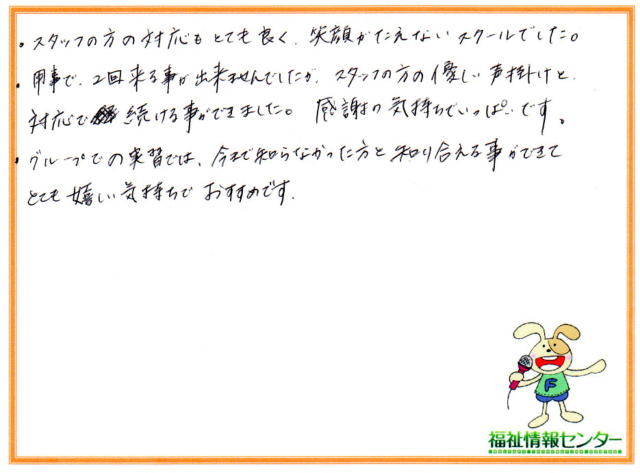 ・スタッフの方の対応もとても良く、笑顔がたえないスクールでした。
・用事で、2回来る事が出来ませんでしたが、スタッフの方の優しい声掛けと
対応で続ける事ができました。感謝の気持ちでいっぱいです。
・グループでの実習では、今まで知らなかった方と知り合える事ができて
とても嬉しい気持ちでおすすめです。
F
福祉情報センター